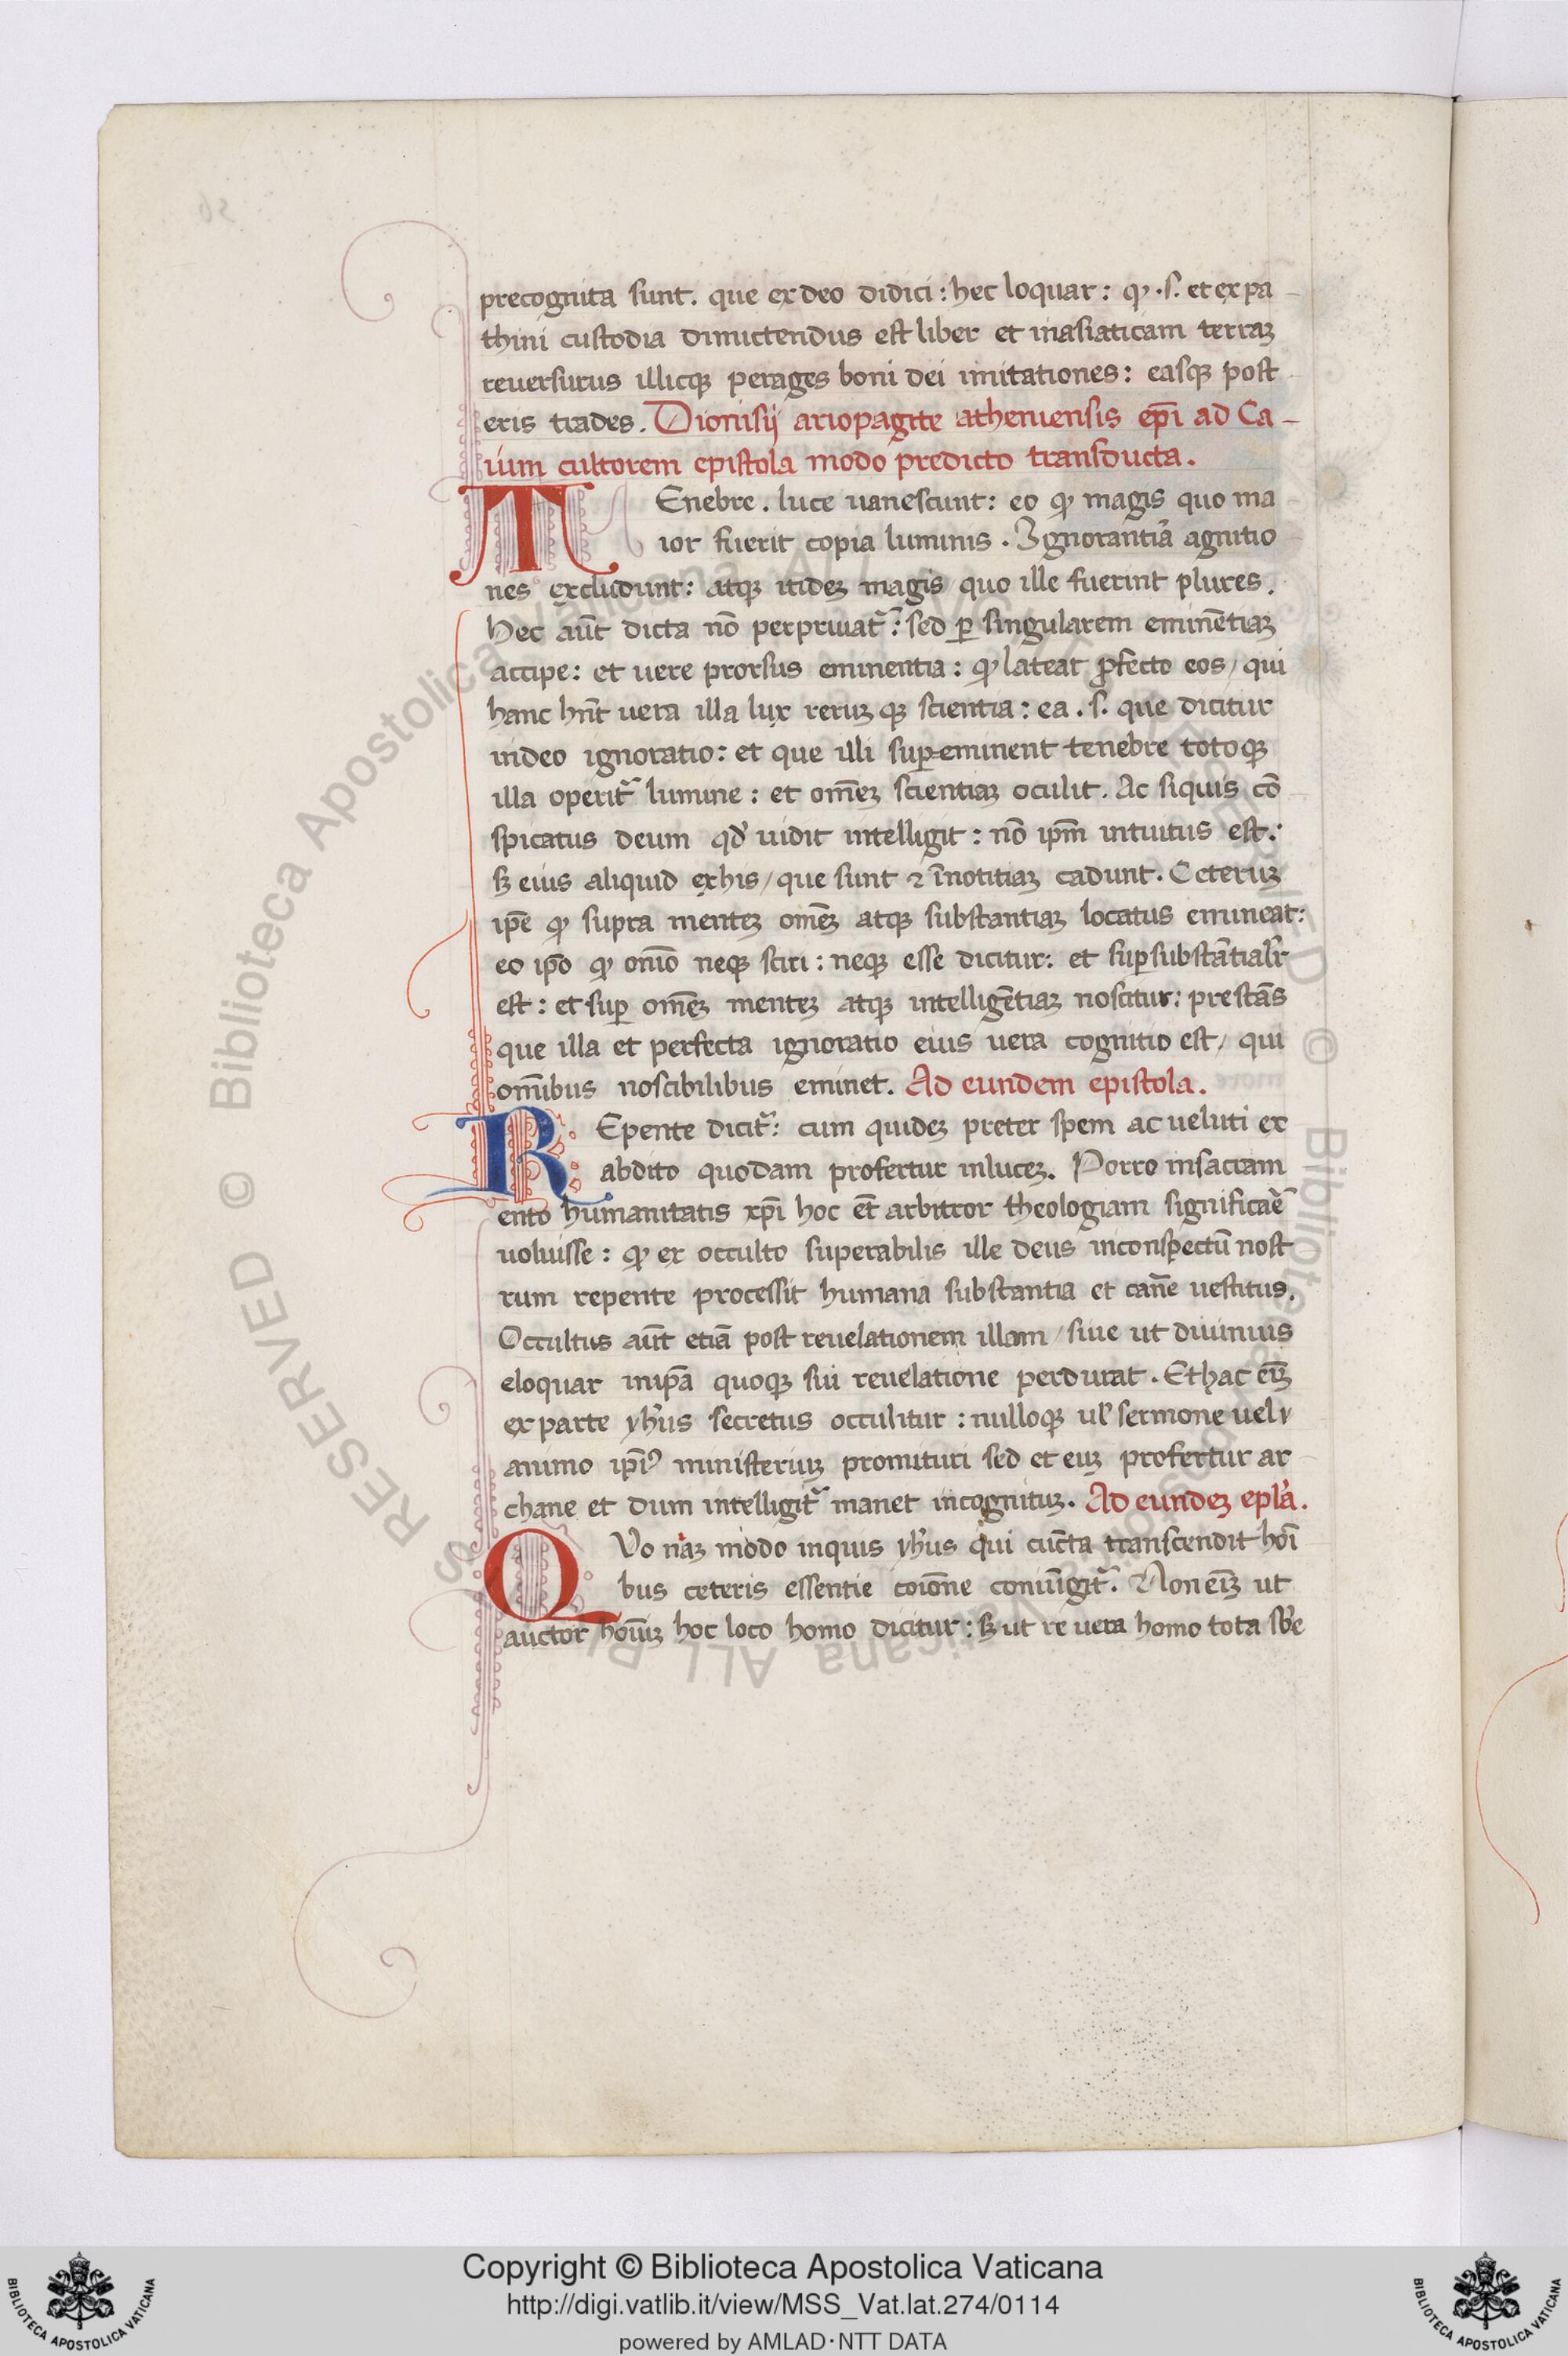 precognita sunt. que ex deo didici: hec loquar: ꝙ .s. et ex pa
thini custodia dimictendus est liber et inasiaticam terraꝫ
reuersurus illicqꝫ perages boni dei imitationes: easqꝫ post
eris trades. Dionisij ariopagite atheniensis ep̄i ad Ca-
ium cultorem epistola modo predicto transducta.
TEnebre. luce uanescunt: eo ꝙ magis quo ma
ior fuerit copia luminis. Ignorantiā agnitio
nes excludunt: atqꝫ itideꝫ magis quo ille fuerint plures.
Hec aūt dicta nō perpriuat᷑: sed ꝑ singularem eminētiaꝫ
accipe: et uere prorsus eminentia: ꝙ lateat ꝓfecto eos/ qui
hanc hn̄t uera illa lux reruꝫ qꝫ scientia: ea .s. que dicitur
indeo ignoratio: et que illi suꝑ-eminent tenebre totoqꝫ
illa operit᷑ lumine: et om̄eꝫ scientiaꝫ oculit. Ac siquis cō
spicatus deum qd̓ uidit intelligit: nō ip̄m intuitus est:
sꝫ eius aliquid exhis/ que sunt ⁊ īnotitiaꝫ cadunt. Ceteruꝫ
ip̄e ꝙ supra menteꝫ om̄eꝫ atqꝫ substantiaꝫ locatus emineat:
eo ip̄o ꝙ om̄io neqꝫ sciri: neqꝫ esse dicitur: et suꝑsubstātialr̄
est: et suꝑ om̄eꝫ menteꝫ atqꝫ intelligētiaꝫ noscitur: prestās
que illa et perfecta ignoratio eius uera cognitio est/ qui
om̄ibus noscibilibus eminet. Ad eundem epistola.
REpente dicit᷑: cum quideꝫ preter spem ac ueluti ex
abdito quodam profertur inluceꝫ. Porro insacram
ento humanitatis xp̄i hoc et̄ arbitror theologiam significar̄e
uoluisse: ꝙ ex occulto superabilis ille deus inconspectū nost
rum repente processit humana substantia et carn̄e uestitus.
Occultus aūt etiā post reuelationem illam/ siue ut diuinius
eloquar inip̄a quoqꝫ sui reuelatione perdurat. Et hac ei̅ꝫ
ex parte yh̓us secretus occulitur: nulloqꝫ ul̓ sermone uel
animo ip̄i᷒ ministeriuꝫ promituri sed et euꝫ profertur ar
chane et dum intelligit᷑ manet incognituꝫ. Ad eundeꝫ epl̓a.
QVo naꝫ modo inquis yh̓us qui cūcta transcendit hoī
bus ceteris essentie coīone coniūgit᷑. Non ei̅ꝫ ut
auctor hoīuꝫ hoc loco homo dicitur: sꝫ ut re uera homo tota sb̓e
Copyright © Biblioteca Apostolica Vaticana
http://digi.vatlib.it/view/MSS_Vat.lat.274/0114
powered by AMLAD·NTT DATA